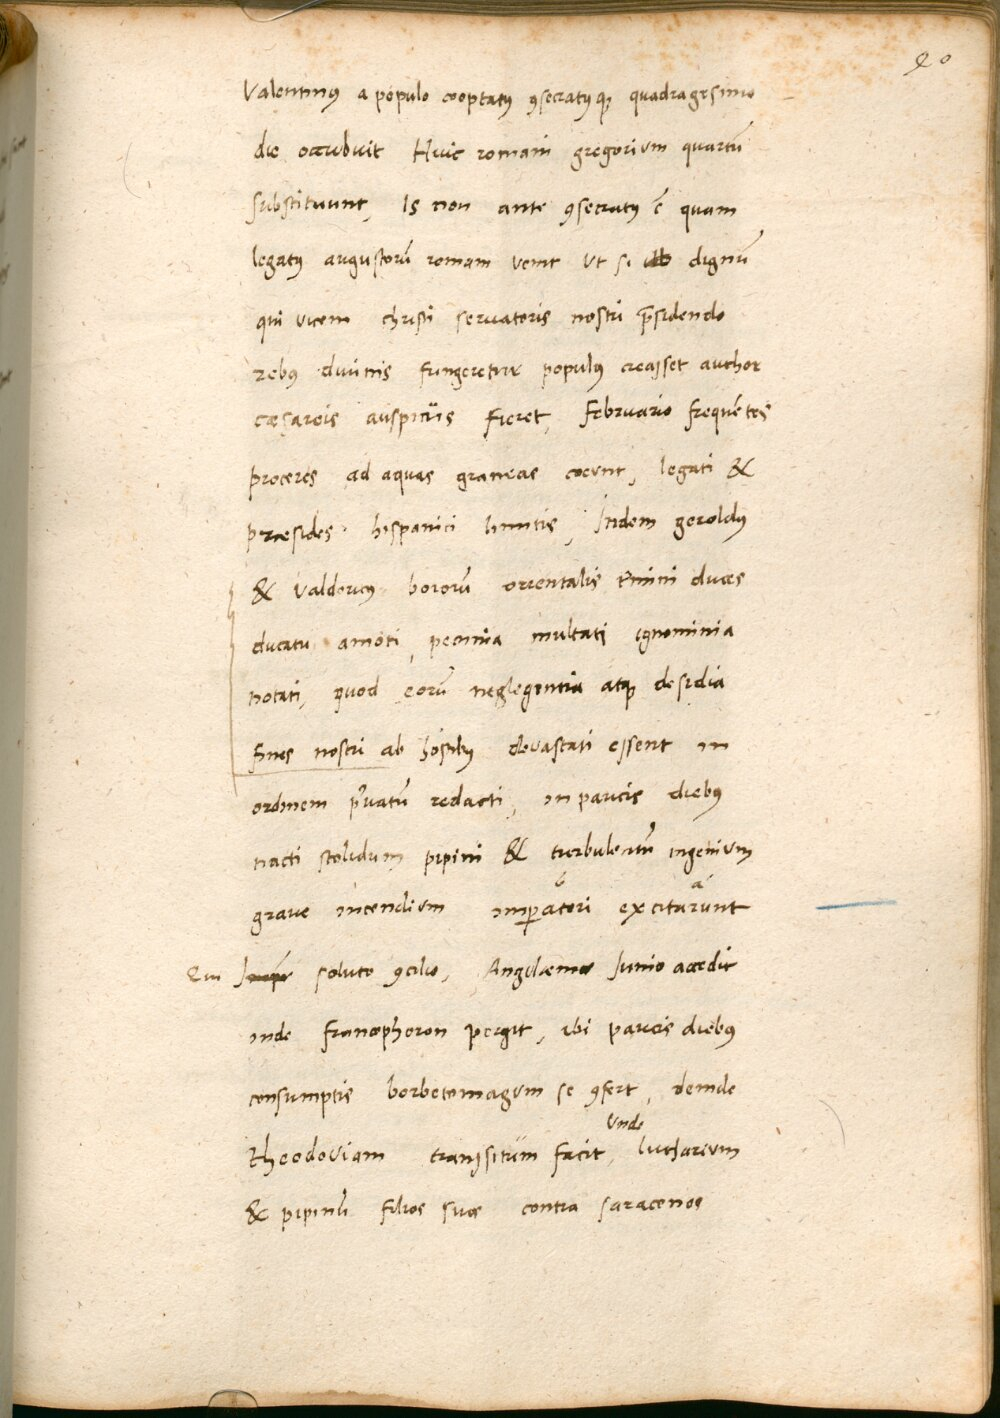 20
Valentinus a populo cooptatus ꝯsecratusqꝫ quadragesimo
die occubuit Huic romani gregorium quartū
substituunt, Is non ante ꝯsecratus ē quam
legatus augustorū romam venit vt si dignū
qui vicem christi servatoris nostri p̄sidendo
rebus divinis fungeretur populus creasset author
cæsareis auspitiis fieret, februario frequētes
proceres ad aquas graneas coeunt, legati &
præsides hispanici limitis, Itidem geroldus
& Valdericus boiorū orientalis tᵉmini duces
ducatu amoti, pecunia multati ignominia
notati, quod eorū neglegentia atqꝫ desidia
fines nostri ab hostibus devastati essent in
ordinem pⁱvatū redacti, in paucis diebus
nacti stolidum pipini & turbulentū ingenium
b a
grave incendium imꝑatori excitarunt
Qui soluto ꝯcilio, Angilæmo Junio accedit
inde francopheron pergit, ibi paucis diebus
consumptis borbetomagum se ꝯfert, deinde
unde
theodoviam transitum facit, lutharium
& pipinū filios suos contra saracenos